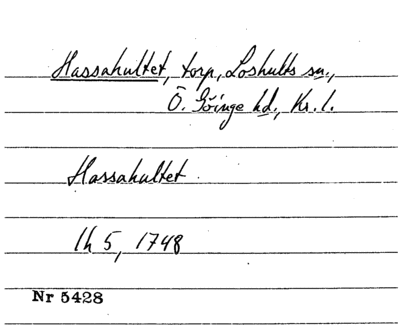 Hassahultet, torp, Loshults sn.,
Ö. Göinge hd., Kr. l.
Hassahultet.
lh 5, 1748
Nr 5428